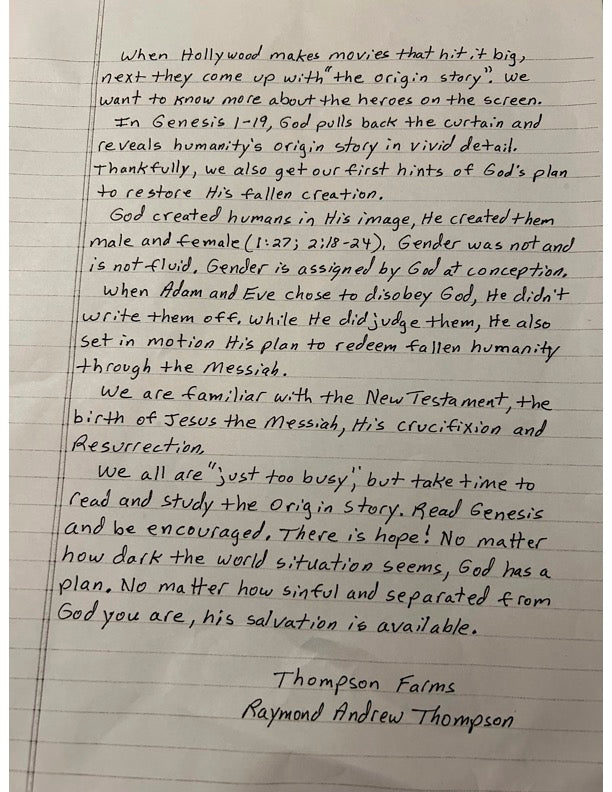 When Hollywood makes movies that hit it big,
next they come up with "the origin story". We
want to know more about the heroes on the screen.
In Genesis 1-19, God pulls back the curtain and
reveals humanity's origin story in vivid detail.
Thankfully, we also get our first hints of God's plan
to restore His fallen creation.
God created humans in His image, He created them
male and female (1:27; 2:18-24). Gender was not and
is not fluid. Gender is assigned by God at conception.
When Adam and Eve chose to disobey God, He didn't
write them off. While He did judge them, He also
set in motion His plan to redeem fallen humanity
through the Messiah.
We are familiar with the New Testament, the
birth of Jesus the Messiah, His crucifixion and
Resurrection.
We all are "just too busy", but take time to
read and study the Origin Story. Read Genesis
and be encouraged. There is hope! No matter
how dark the world situation seems, God has a
plan. No matter how sinful and separated from
God you are, his salvation is available.
Thompson Farms
Raymond Andrew Thompson